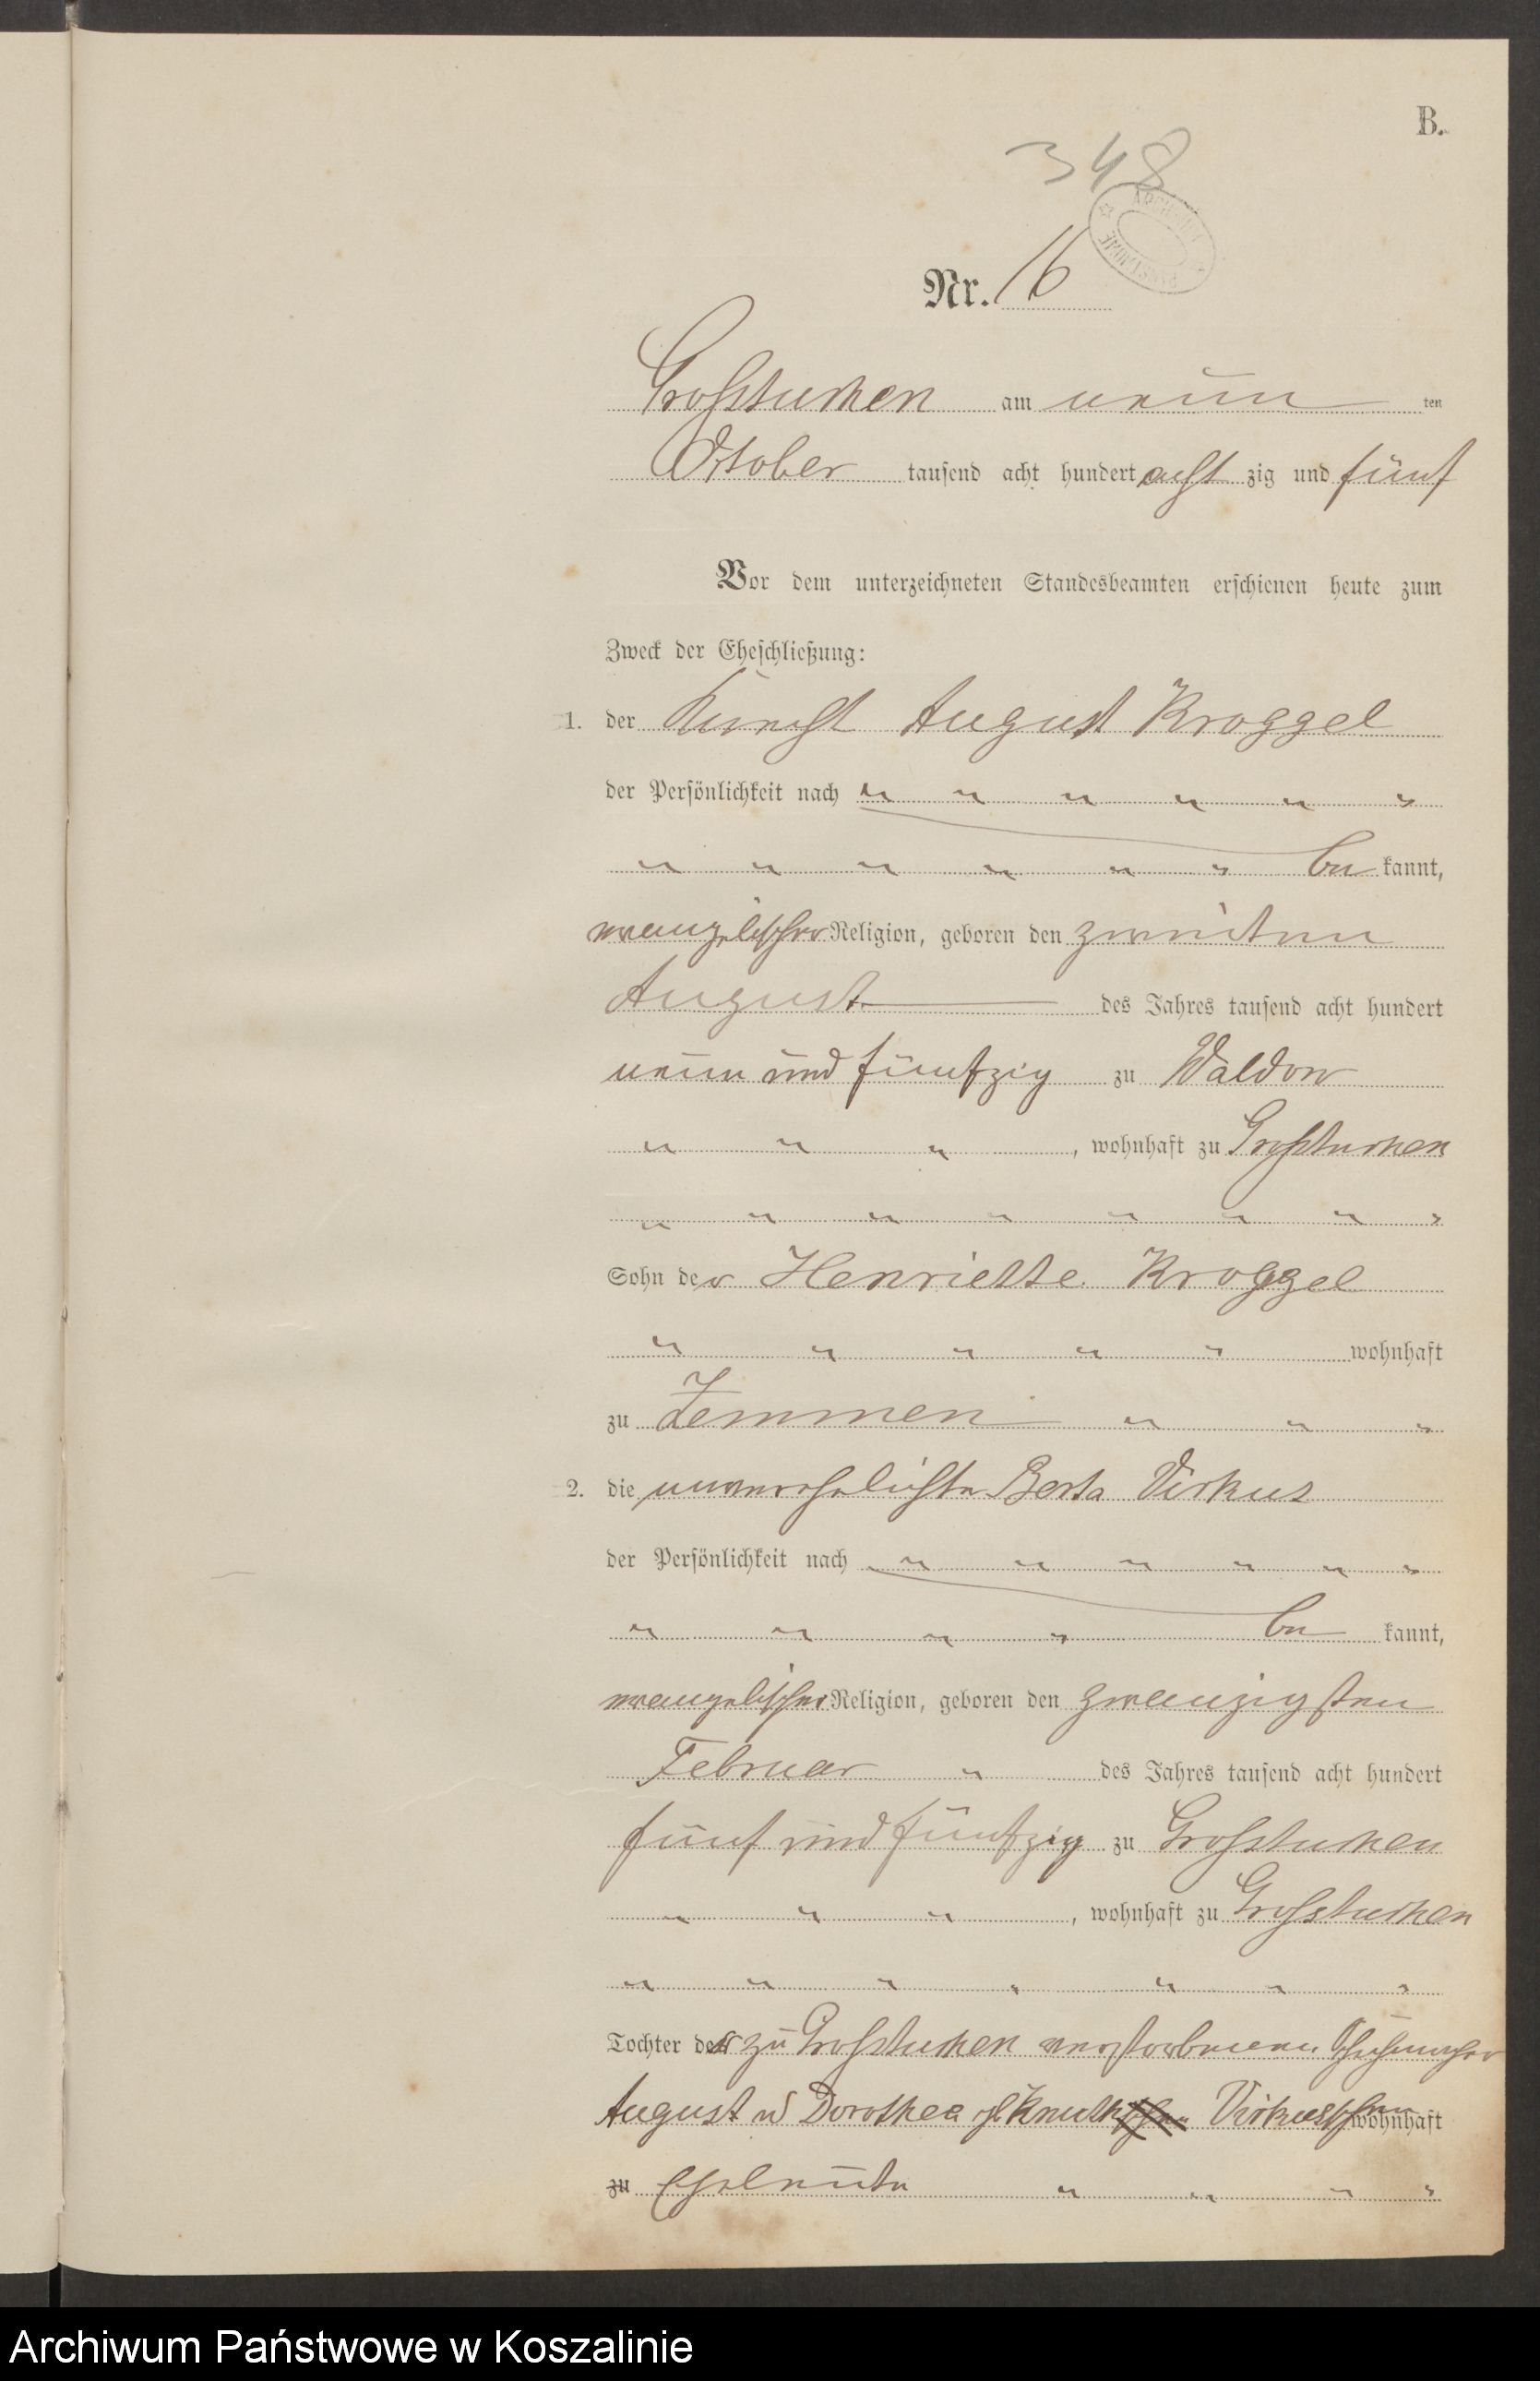 B.
348
Nr. 16
Großtuchen am neun ten
October tausend acht hundert acht zig und fünf
Vor dem unterzeichneten Standesbeamten erschienen heute zum
Zweck der Eheschließung:
1. der Knecht August Kroggel
der Persönlichkeit nach
be kannt,
evangelischer Religion, geboren den zweiten
August des Jahres tausend acht hundert
neun und fünfzig zu Waldow
, wohnhaft zu Großtuchen
Sohn der Henriette Kroggel
wohnhaft
zu Zemmen
2. die unverehelichte Berta Virkus
der Persönlichkeit nach
be kannt,
evangelischer Religion, geboren den zwanzigsten
Februar des Jahres tausend acht hundert
fünf und fünfzig zu Großtuchen
, wohnhaft zu Großtuchen
Tochter der zu Großtuchen verstorbenen Schuhmacher
August u Dorothea geb Knuth Virkusschen wohnhaft
zu Eheleute
Archiwum Państwowe w Koszalinie